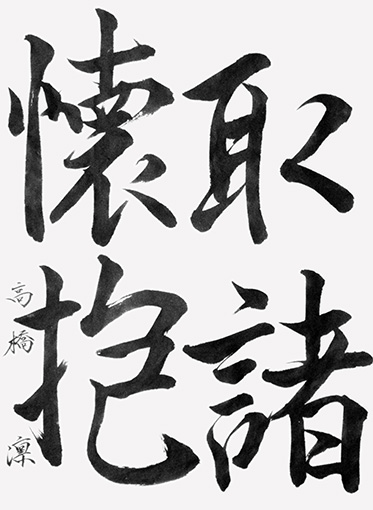 取諸
懐抱
高橋 凜